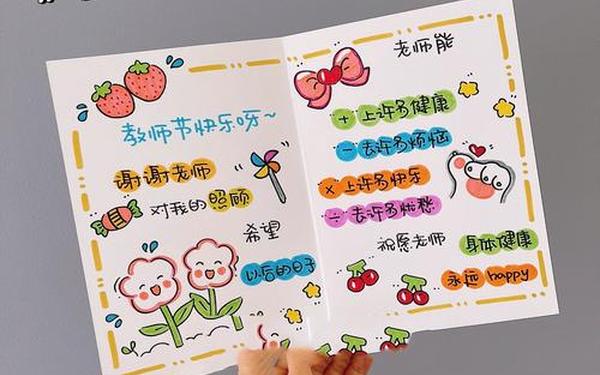 教师节快乐呀~
谢谢老师
对我的照顾
希望
以后的日子
老师能
+上许多健康
-去许多烦恼
×上许多快乐
÷去许多忧愁
祝愿老师
身体健康
永远 happy